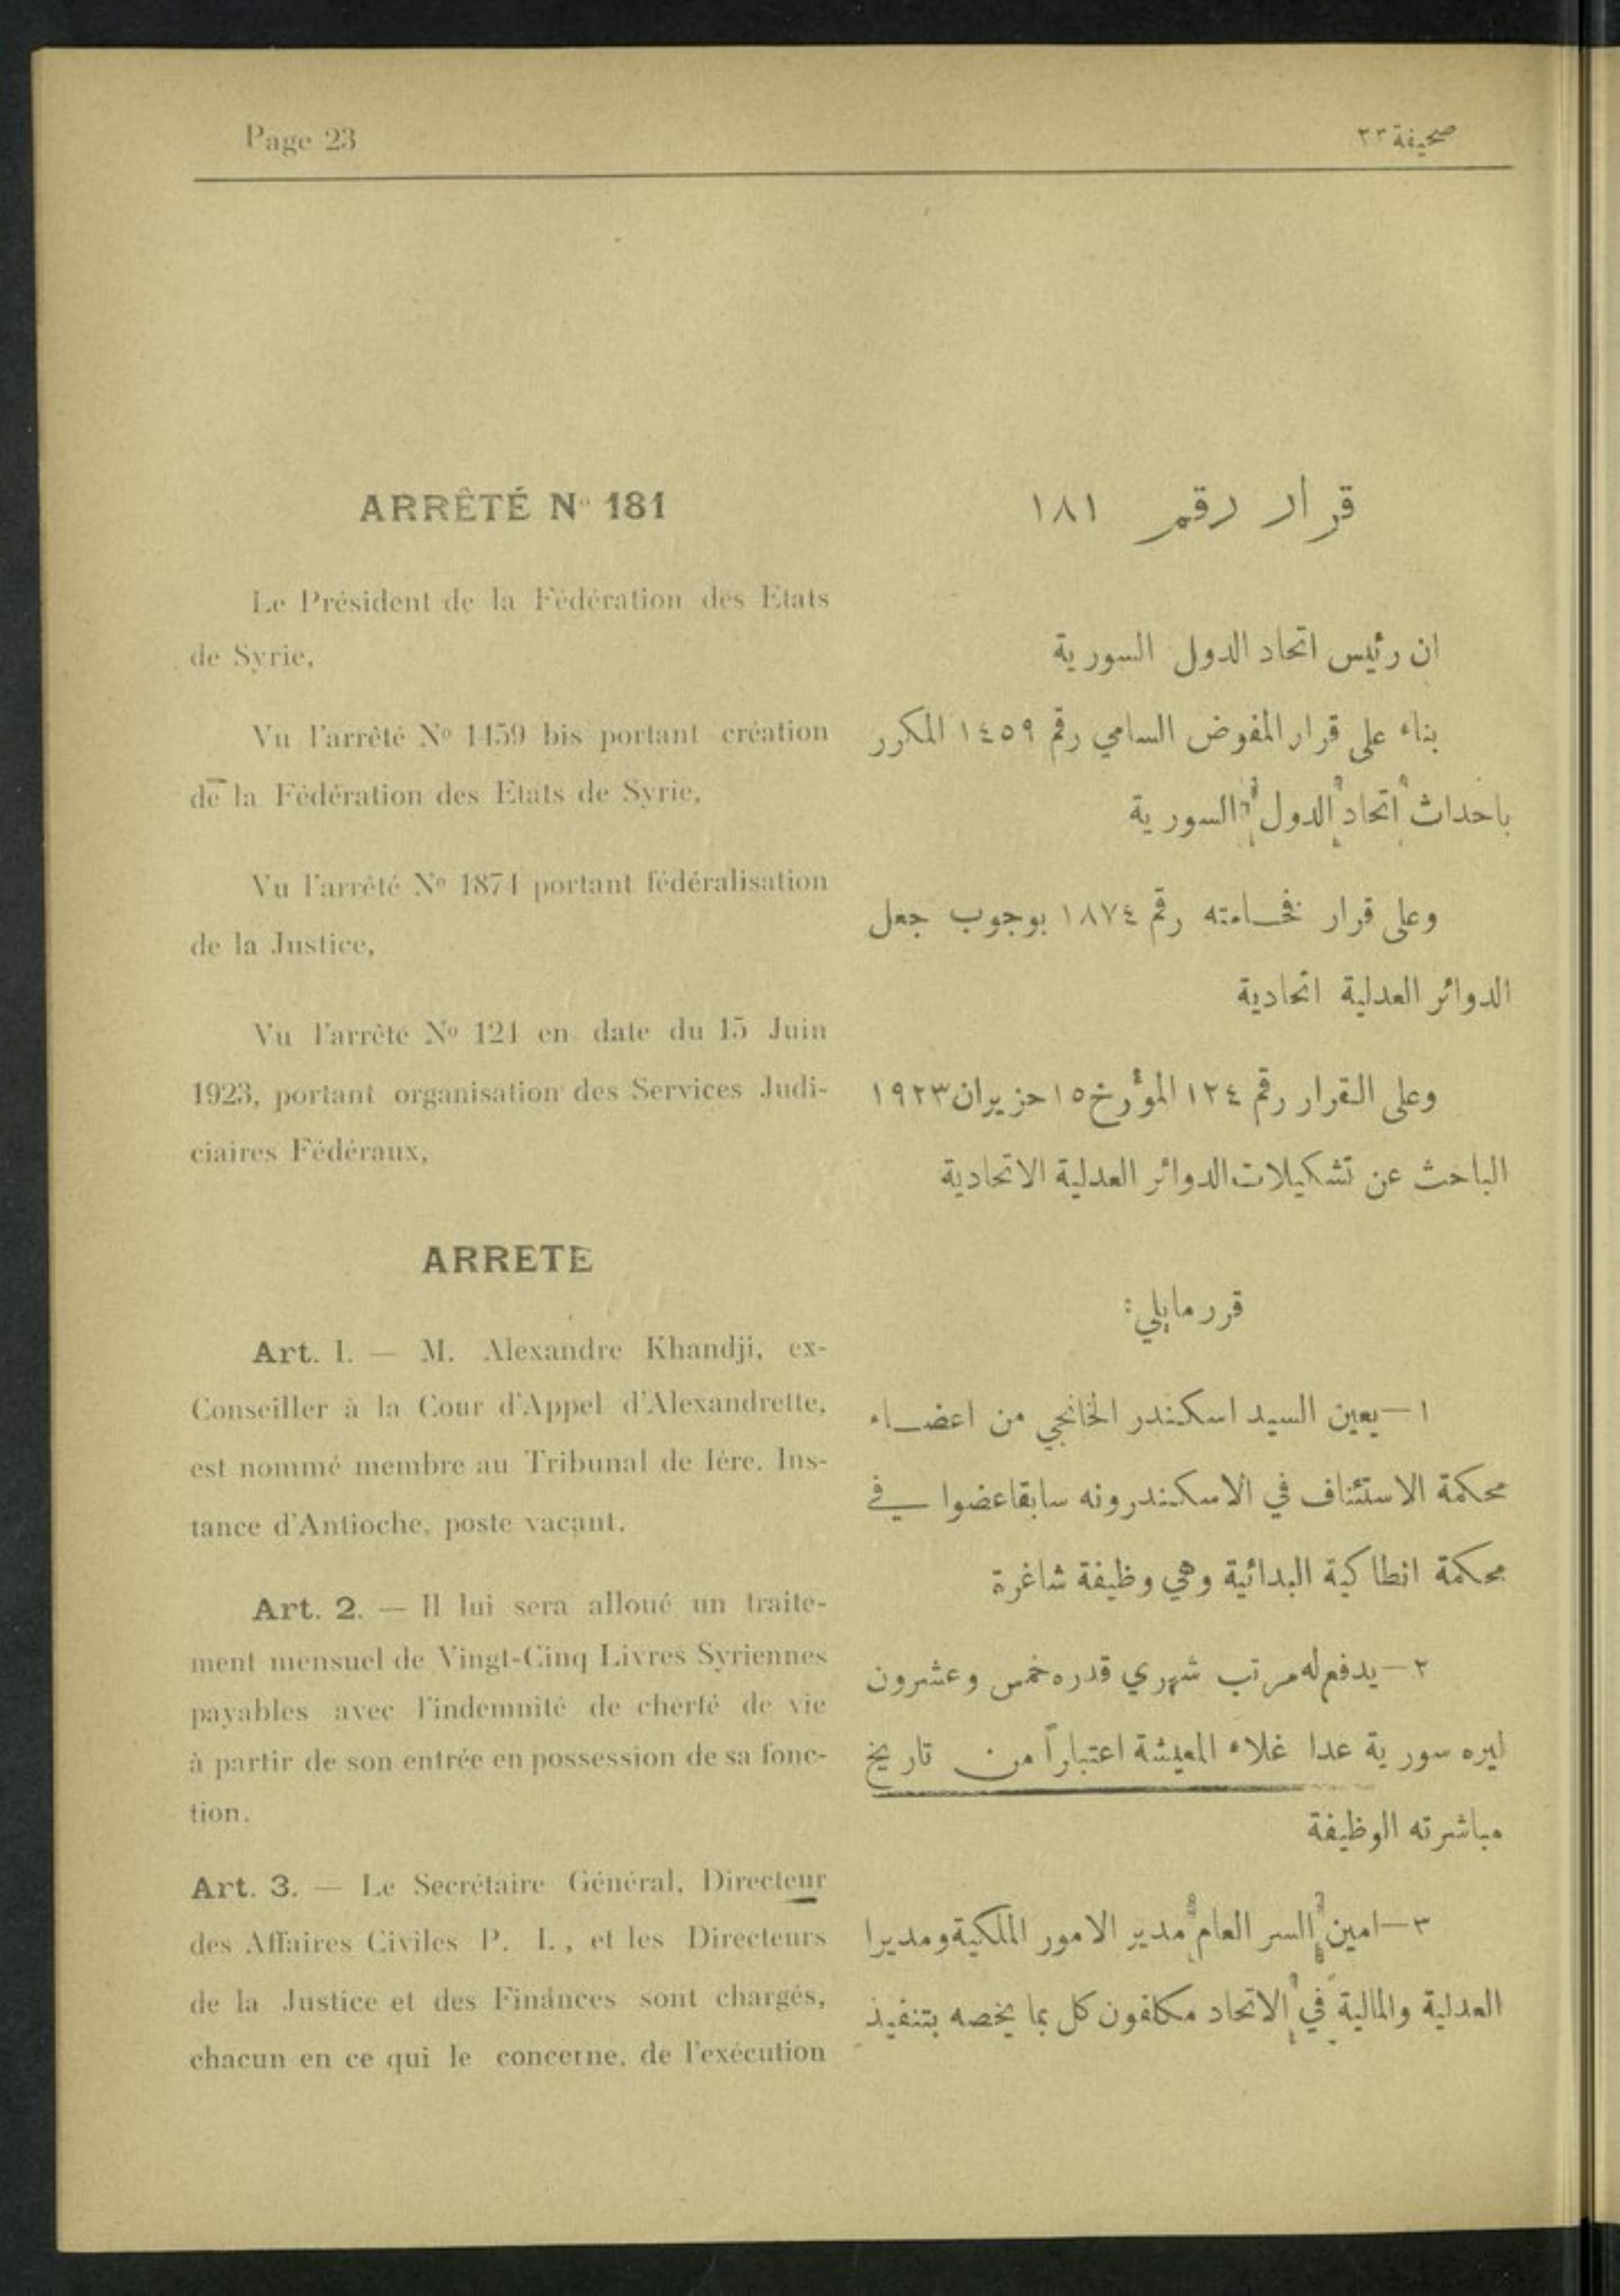 Page 23
صحيفة ٢٣
ARRÊTÉ Nº 181
Le Président de la Fédération des Etats
de Syrie,
Vu l'arrêté Nº 1459 bis portant création
de la Fédération des Etats de Syrie,
Vu l'arrêté Nº 1874 portant fédéralisation
de la Justice,
Vu l'arrêté Nº 124 en date du 15 Juin
1923, portant organisation des Services Judi-
ciaires Fédéraux,
ARRETE
Art. 1. — M. Alexandre Khandji, ex-
Conseiller à la Cour d'Appel d'Alexandrette,
est nommé membre au Tribunal de Iére. Ins-
tance d'Antioche, poste vacant.
Art. 2. — Il lui sera alloué un traite-
ment mensuel de Vingt-Cinq Livres Syriennes
payables avec l'indemnité de cherté de vie
à partir de son entrée en possession de sa fonc-
tion.
Art. 3. — Le Secrétaire Général, Directeur
des Affaires Civiles P. I., et les Directeurs
de la Justice et des Finances sont chargés,
chacun en ce qui le concerne, de l'exécution
قرار رقم ١٨١
ان رئيس اتحاد الدول السورية
بناء على قرار المفوض السامي رقم ١٤٥٩ المكرر
باحداث اتحاد الدول السورية
وعلى قرار فخامته رقم ١٨٧٤ بوجوب جعل
الدوائر العدلية اتحادية
وعلى القرار رقم ١٢٤ المؤرخ ١٥ حزيران ١٩٢٣
الباحث عن تشكيلات الدوائر العدلية الاتحادية
قرر مايلي:
١ — يعين السيد اسكندر الخانجي من اعضاء
محكمة الاستئناف في الاسكندرونه سابقا عضوا في
محكمة انطاكية البدائية وهي وظيفة شاغرة
٢ — يدفع له مرتب شهري قدره خمس وعشرون
ليره سورية عدا غلاء المعيشة اعتباراً من تاريخ
مباشرته الوظيفة
٣ — امين السر العام مدير الامور الملكية ومديرا
العدلية والمالية في الاتحاد مكلفون كل بما يخصه بتنفيذ